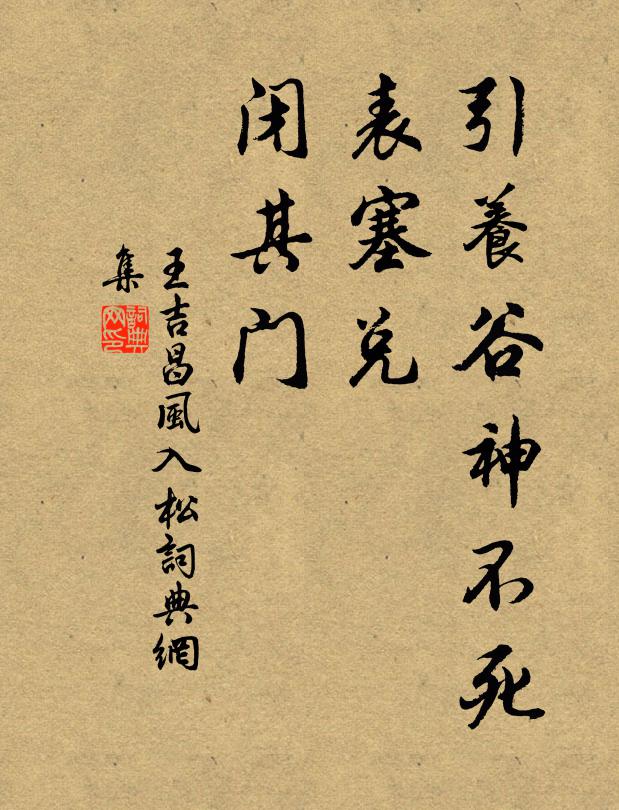 引養谷神不死
表塞兑
闭其门
王吉昌風入松詞典網
集
詞典
网印